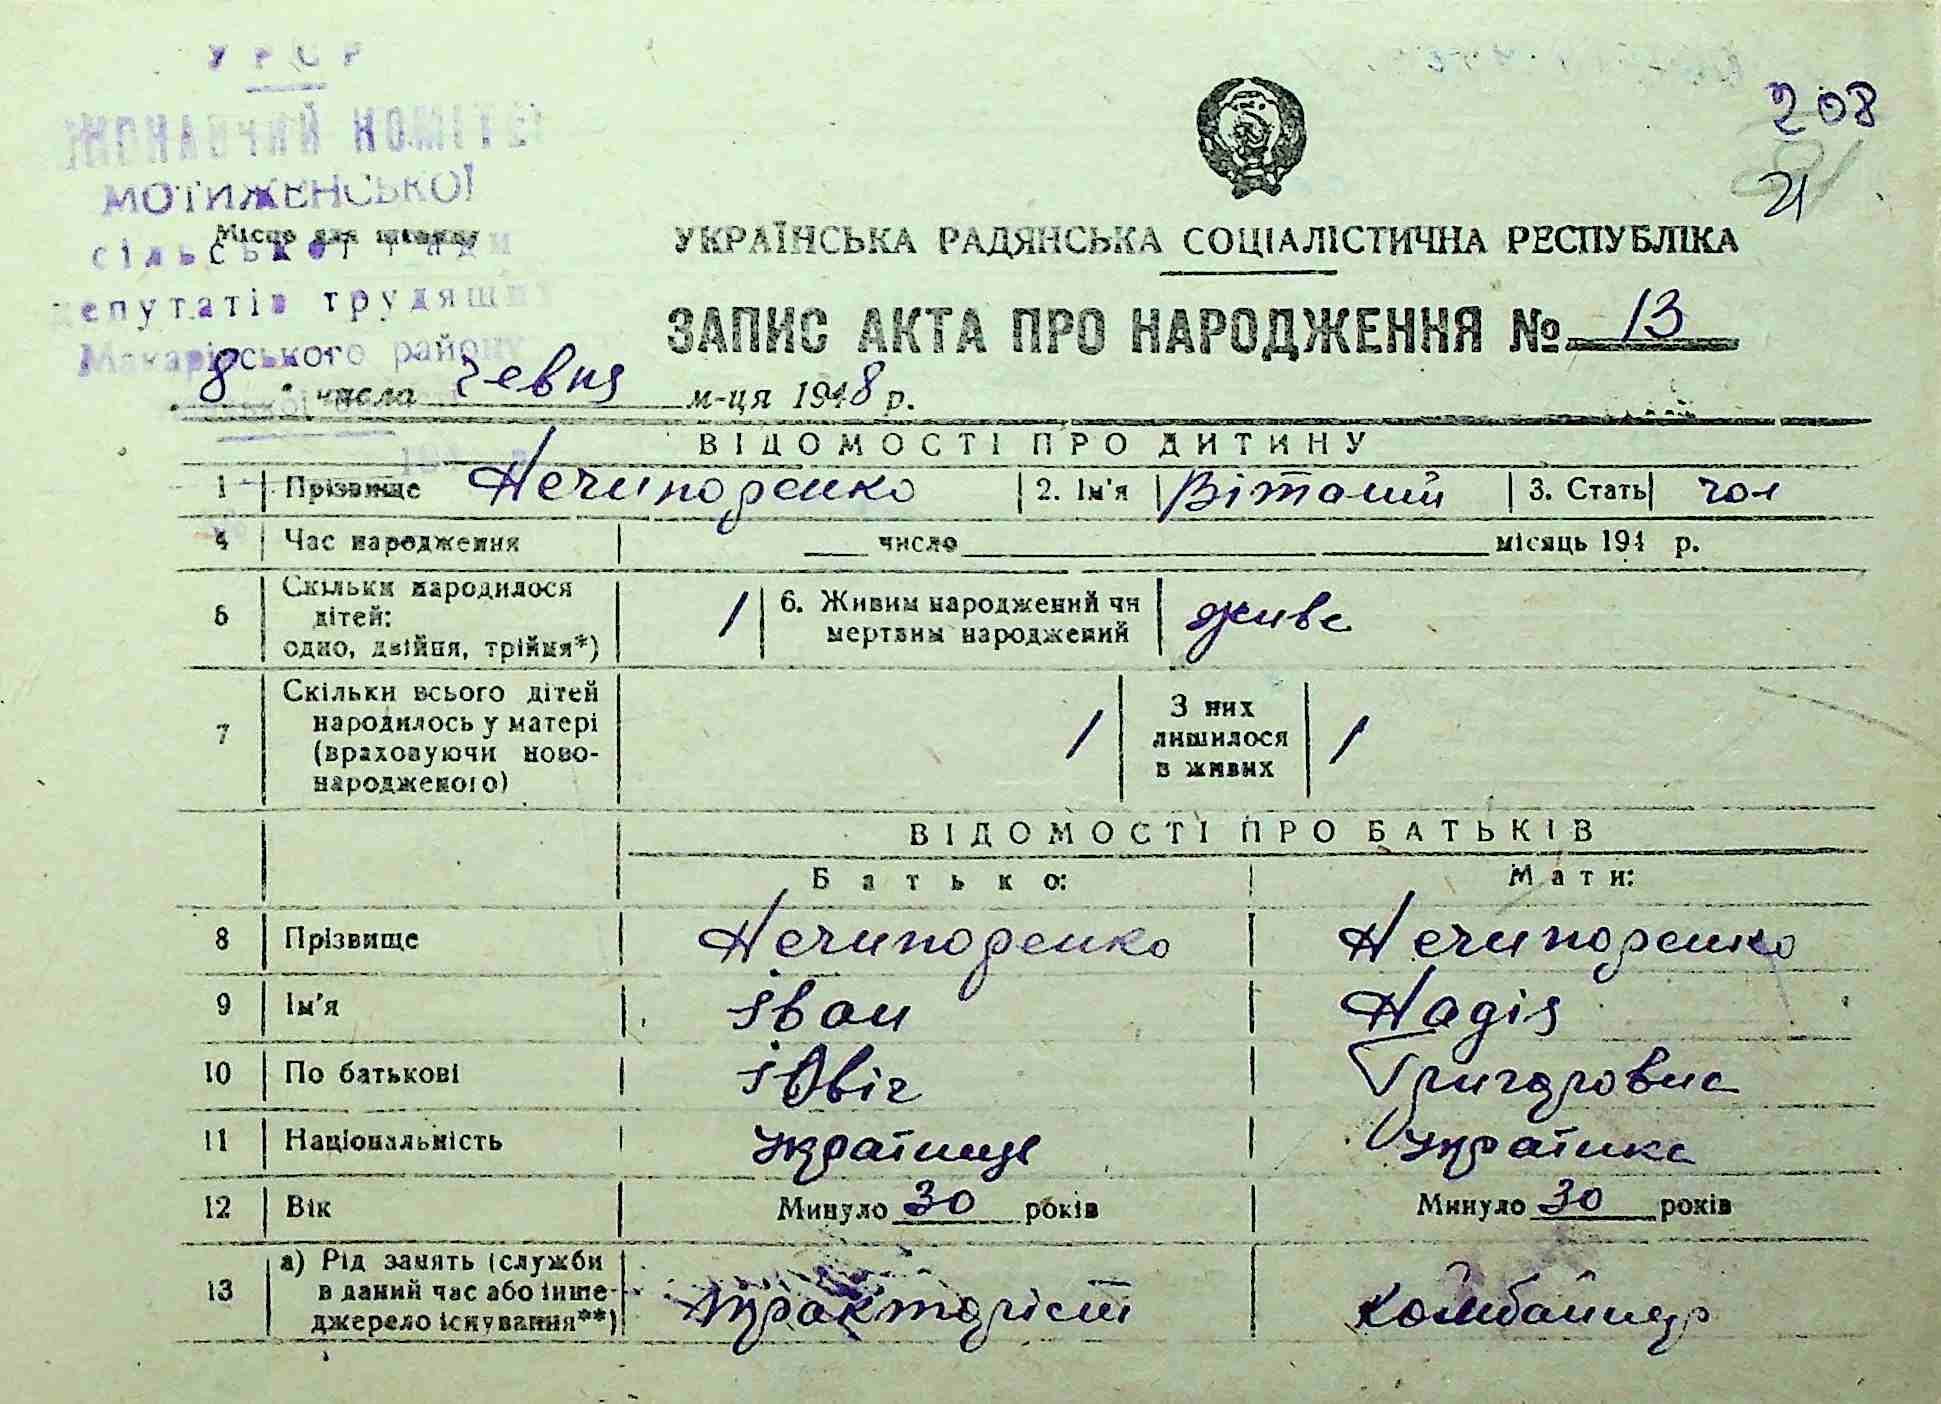 УРСР
ВИКОНАВЧИЙ КОМІТЕТ
МОТИЖЕНСЬКОЇ
Місце для штампу
сільської ради
депутатів трудящих
Макарівського району
208
21
УКРАЇНСЬКА РАДЯНСЬКА СОЦІАЛІСТИЧНА РЕСПУБЛІКА
ЗАПИС АКТА ПРО НАРОДЖЕННЯ № 13
8 числа червня м-ця 1948 р.
ВІДОМОСТІ ПРО ДИТИНУ
1 Прізвище Нечипоренко 2. Ім'я Віталий 3. Стать чол
4 Час народження число місяць 194 р.
5 Скільки народилося дітей: одно, двійня, трійня*) 1 6. Живим народжений чи мертвим народжений живе
7 Скільки всього дітей народилось у матері (враховуючи новонародженого) 1 З них лишилося в живих 1
ВІДОМОСТІ ПРО БАТЬКІВ
Батько: Мати:
8 Прізвище Нечипоренко Нечипоренко
9 Ім'я Іван Надія
10 По батькові Григоровна
11 Національність українце українка
12 Вік Минуло 30 років Минуло 30 років
13 а) Рід занять (служби в даний час або інше джерело існування**) тракторіст Комбайнер